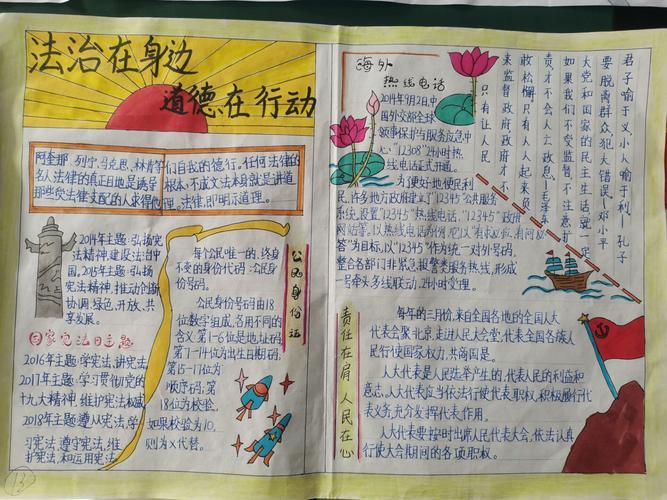 法治在身边
道德在行动
阿奎那、列宁、马克思、林肯等们自我的德行。任何法律的
名人法律的真正目地是诱导 根本:不成文法本身就是讲道
那些受法律支配的人求得他 理。法律,即明示道理。
2014年主题:弘扬宪
法精神,建设法治中
国。2015年主题:弘扬
宪法精神,推动创新
协调、绿色、开放、共
享发展。
国家宪法日主题
2016年主题:学宪法,讲宪法
2017年主题:学习贯彻党的
十九大精神,维护宪法权威
2018年主题遵从宪法,学
习宪法、遵守宪法、维
护宪法、和运用宪法
每个公民唯一的、终身
不变的身份代码:公民身
份号码。
公民身份号码由18
位数字组成,各用不同的
含义。第1-6位是地址码;
第7-14位为出生日期码;
第15-17位为
顺序码;第
18位为校验。
如果校验为10,
则为X代替。
公民身份证
海外
热线电话
2014年9月2日中
国外交部全球
领事保护与服务应急中
心"12308"24小时热
线电话正式开通。
为了更好地便民利
民,许多地方政府建立了"12345"公共服务
系统,设置"12345"热线电话,"12345"政府
网站等。以热线电话为例,它以"有求必应,有问必
答"为目标,以"12345"作为统一对外号码,
整合各部门非紧急、报警类服务热线,形成
一号牵头多线联动,24小时受理。
君子喻于义,小人喻于利—孔子
要脱离群众,犯大错误—邓小平
大党和国家的民主生活,就一定
如果我们不受监督,不注意扩
责,才不会人亡政息—毛泽东
敢松懈。只有人人起来负
来监督政府,政府才不
只有让人民
责任在肩 人民在心
每年的三月份,来自全国各地的全国人大
代表会聚北京,走进人民大会堂,代表全国各族人
民行使国家权力,共商国是。
人大代表是人民选举产生的,代表人民的利益和
意志。人大代表应当依法行使代表职权,积极履行代
表义务,充分发挥代表作用。
人大代表要按时出席人民代表大会,依法认真
行使大会期间的各项职权。
13